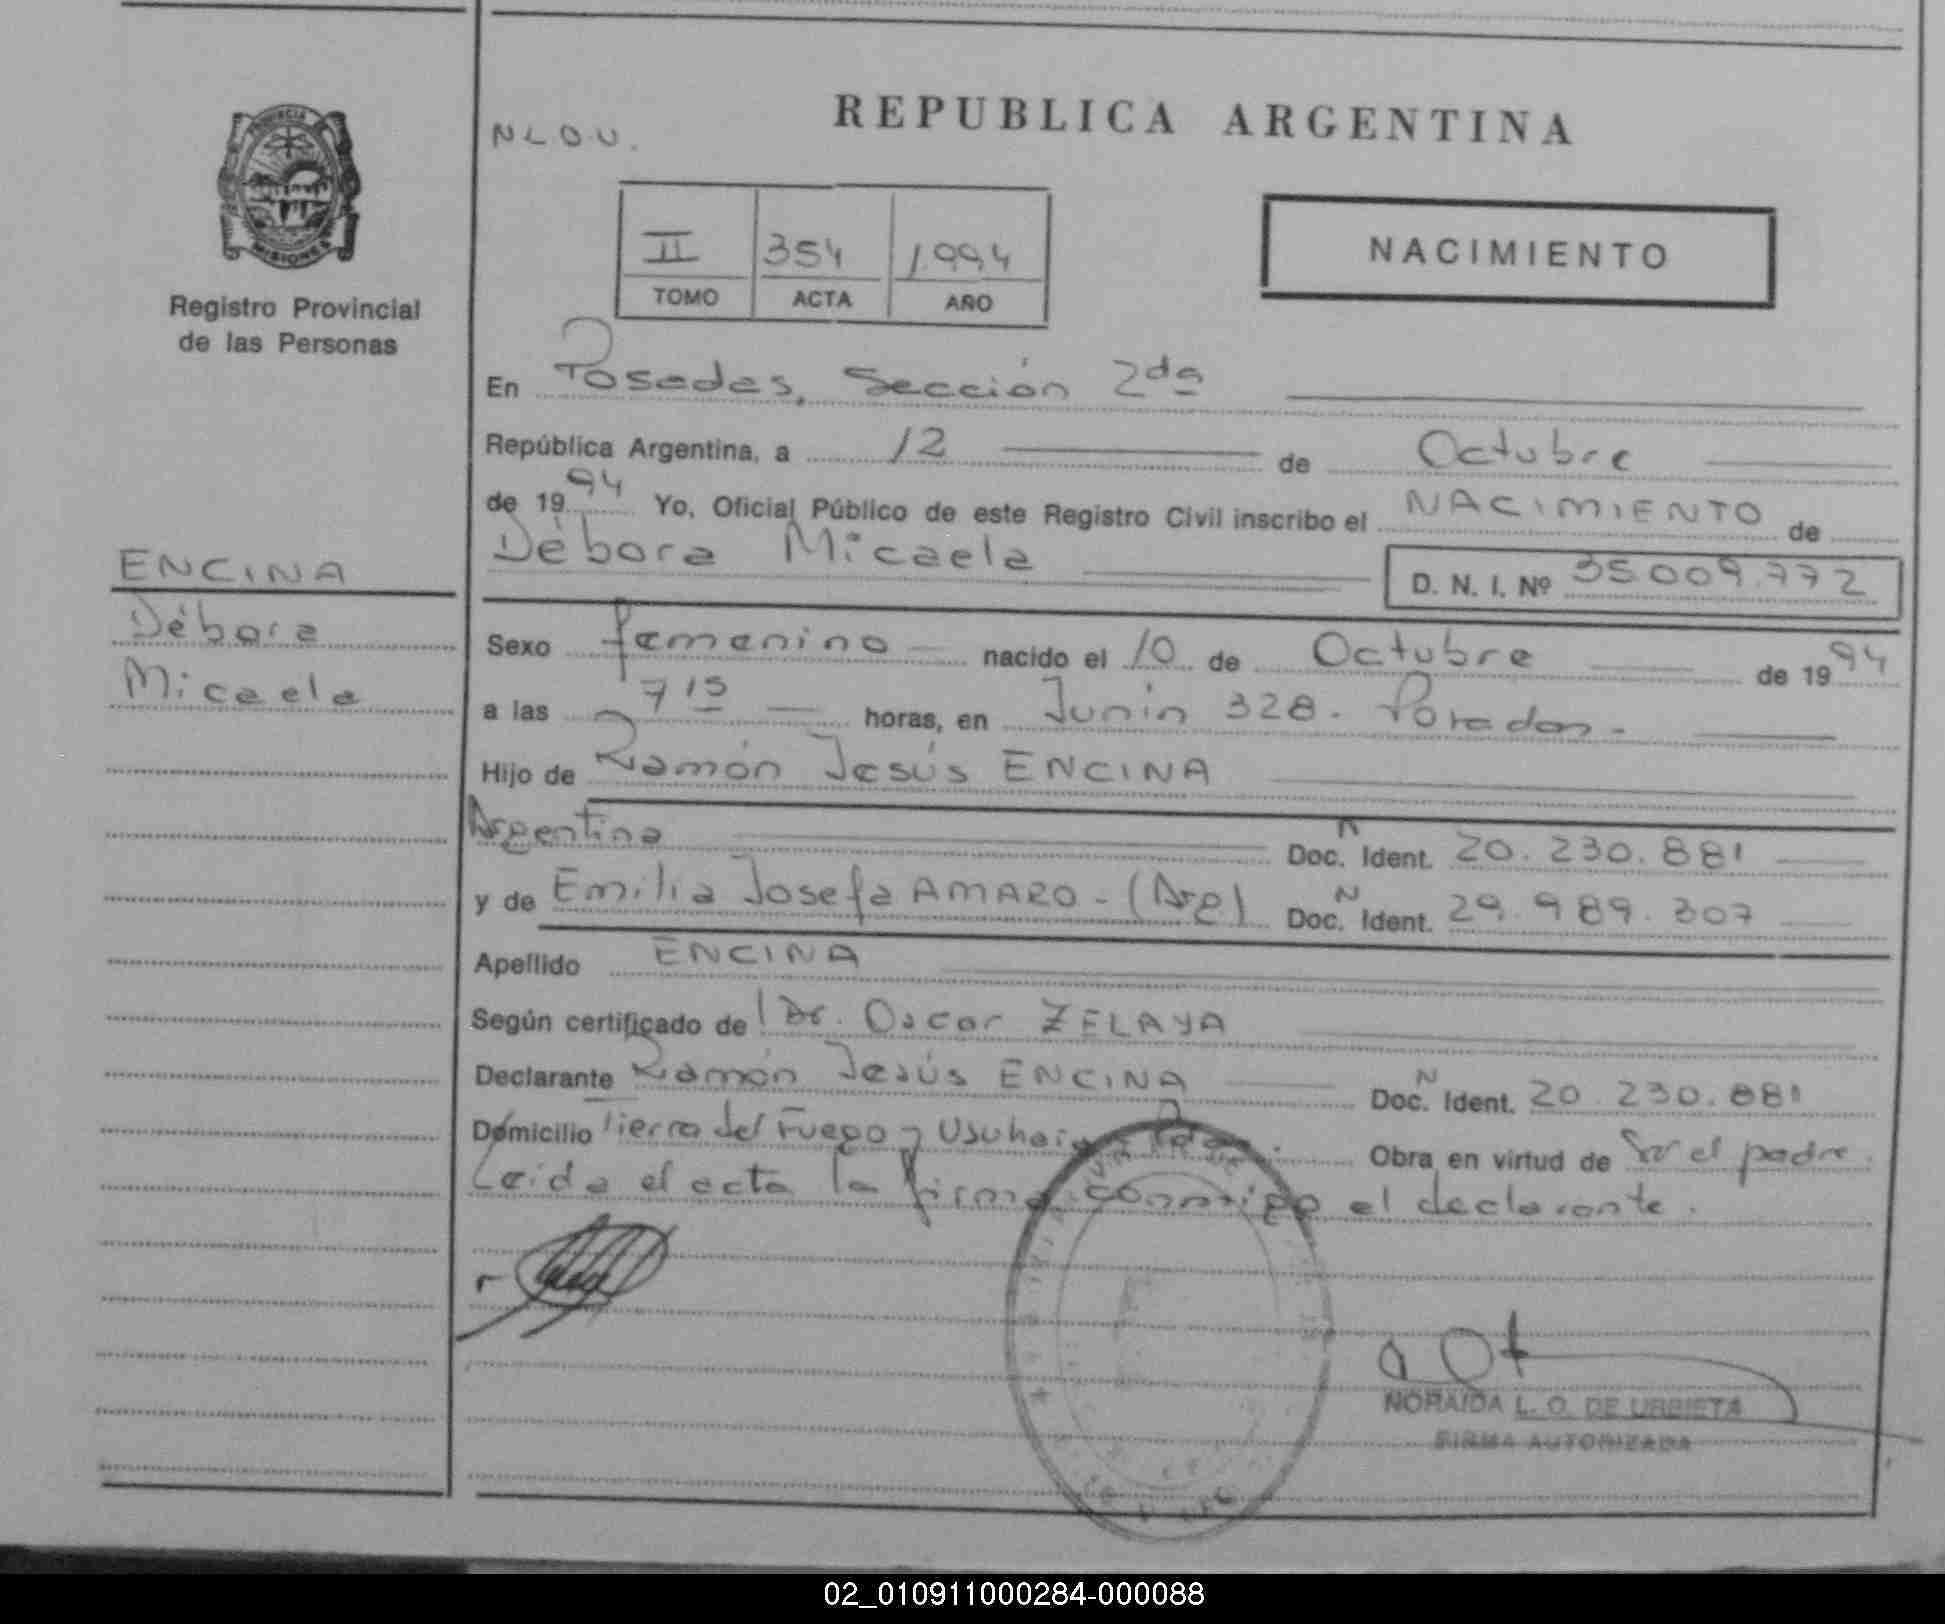 REPUBLICA ARGENTINA
N L O U.
PROVINCIA DE
MISIONES
Registro Provincial
de las Personas
II 354 1.994
TOMO ACTA AÑO
NACIMIENTO
En Posadas, Sección 2da
República Argentina, a 12 de Octubre
de 1994 Yo, Oficial Público de este Registro Civil inscribo el NACIMIENTO de
Débora Micaela D. N. I. Nº 35.009.772
ENCINA
Débora
Micaela
Sexo femenino nacido el 10 de Octubre de 1994
a las 7 15 horas, en Junín 328. Posadas-
Hijo de Ramón Jesús ENCINA
Argentina Doc. N Ident. 20.230.881
y de Emilia Josefa AMARO - (Arg) Doc. N Ident. 29.989.307
Apellido ENCINA
Según certificado de Dr. Oscar ZELAYA
Declarante Ramón Jesús ENCINA Doc. N Ident. 20.230.881
Domicilio Tierra del Fuego y Usuhaia Obra en virtud de Ser el padre.
Leida el acta la firma conmigo el declarante.
NORAIDA L. O. DE URBIETA
FIRMA AUTORIZADA
02_010911000284-000088